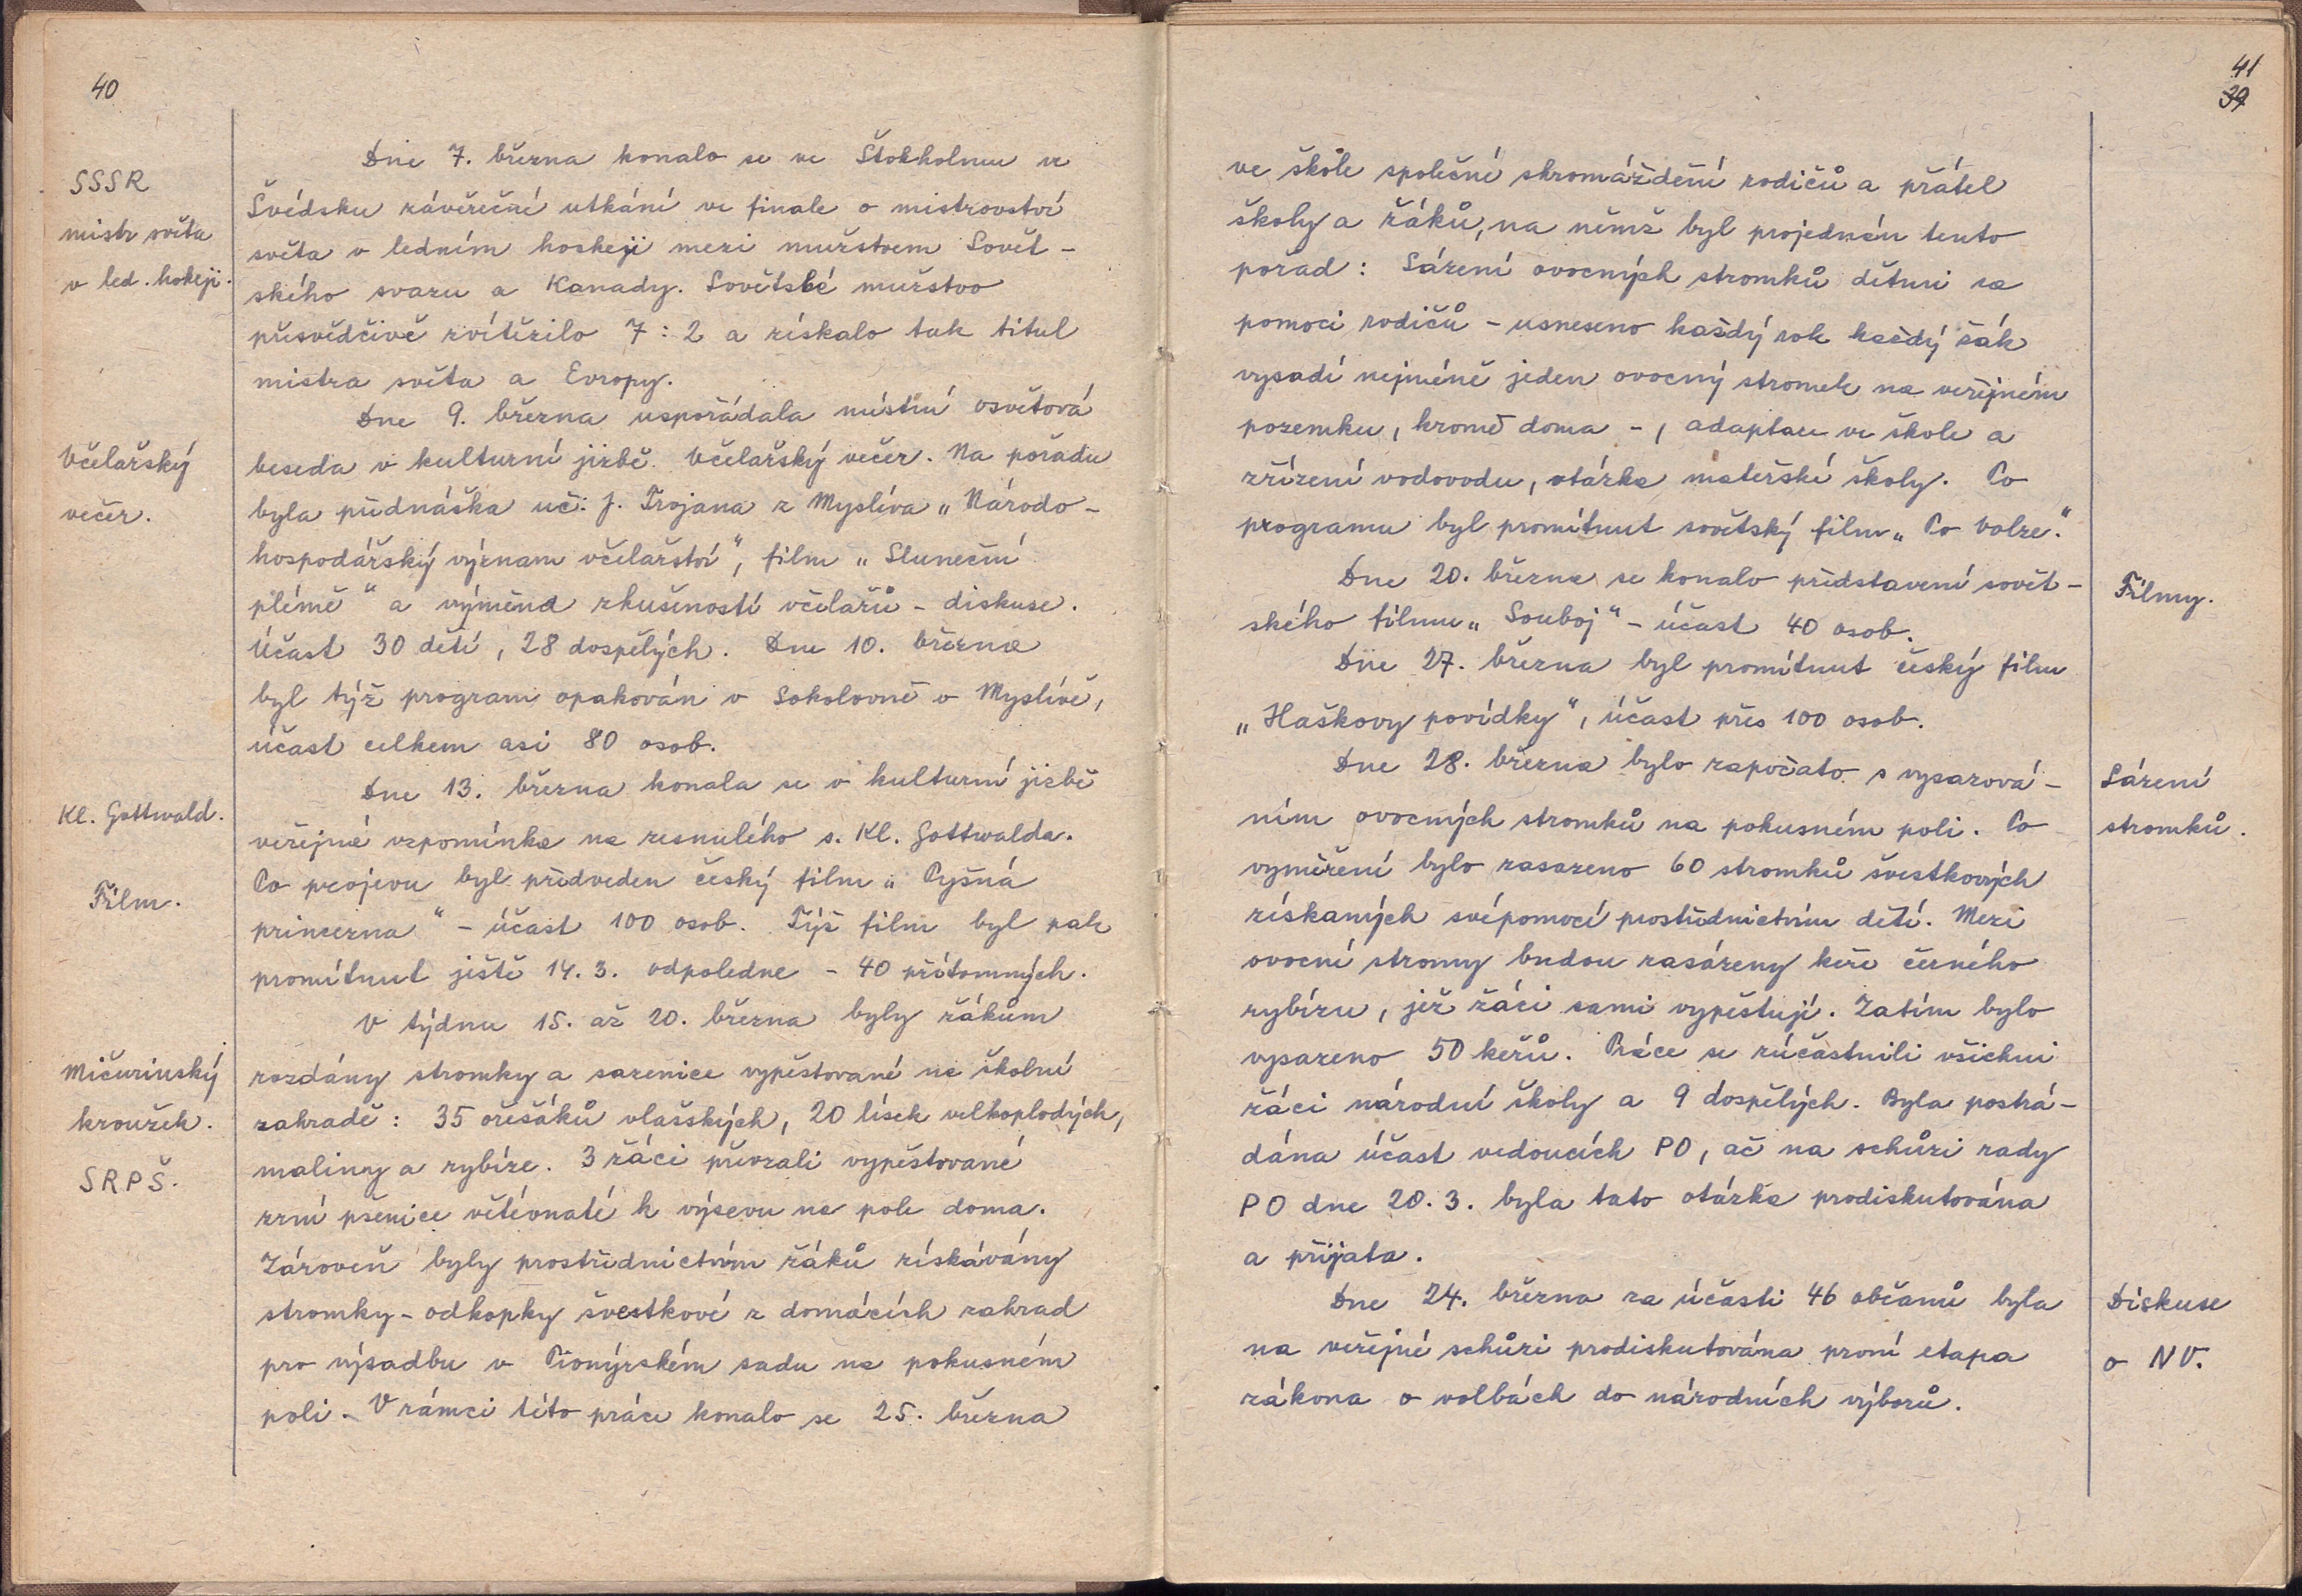 40
SSSR
mistr světa
v led. hokeji.
Dne 7. března konalo se ve Štokholmu ve
Švédsku závěrečné utkání ve finale o mistrovství
světa v ledním hoskeji mezi mužstvem Sovět-
ského svazu a Kanady. Sovětské mužstvo
přesvědčivě zvítězilo 7:2 a získalo tak titul
mistra světa a Evropy.
Včelařský
večer.
Dne 9. března uspořádala místní osvětová
beseda v kulturní jizbě Včelařský večer. Na pořadu
byla přednáška uč. J. Trojana z Myslíva „Národo-
hospodářský význam včelařství“, film „Sluneční
plémě“ a výměna zkušeností včelařů - diskuse.
Účast 30 dětí, 28 dospělých. Dne 10. března
byl týž program opakován v Sokolovně v Myslívě,
účast celkem asi 80 osob.
Kl. Gottwald.
Film.
Dne 13. března konala se v kulturní jizbě
veřejná vzpomínka na zesnulého s. Kl. Gottwalda.
Po projevu byl předveden český film „Pyšná
princezna“ - účast 100 osob. Týž film byl pak
promítnut ještě 14.3. odpoledne - 40 přítomných.
Mičurinský
kroužek.
SRPŠ.
V týdnu 15. až 20. března byly žákům
rozdány stromky a sazenice vypěstované na školní
zahradě: 35 ořešáků vlašských, 20 lísek velkoplodých,
maliny a rybíze. 3 žáci převzali vypěstované
zrní pšenice větévnaté k výsevu na pole doma.
Zároveň byly prostřednictvím žáků získávány
stromky - odkopky švestkové z domácích zahrad
pro výsadbu v Pionýrském sadu na pokusném
poli. V rámci této práce konalo se 25. března
41
39
ve škole společné shromáždění rodičů a přátel
školy a žáků, na němž byl projednán tento
pořad: Sázení ovocných stromků dětmi za
pomoci rodičů - usneseno každý rok každý žák
vysadí nejméně jeden ovocný stromek na veřejném
pozemku, kromě doma -, adaptace ve škole a
zřízení vodovodu, otázka mateřské školy. Po
programu byl promítnut sovětský film „Po Volze.“
Filmy.
Dne 20. března se konalo představení sovět-
ského filmu „Souboj“ - účast 40 osob.
Dne 27. března byl promítnut český film
„Haškovy povídky“, účast přes 100 osob.
Sázení
stromků.
Dne 28. března bylo započato s vysazová-
ním ovocných stromků na pokusném poli. Po
vyměření bylo zasazeno 60 stromků švestkových
získaných svépomocí prostřednictvím dětí. Mezi
ovocné stromy budou zasázeny keře černého
rybízu, jež žáci sami vypěstují. Zatím bylo
vysazeno 50 keřů. Práce se zúčastnili všichni
žáci národní školy a 9 dospělých. Byla postrá-
dána účast vedoucích PO, ač na schůzi rady
PO dne 20.3. byla tato otázka prodiskutována
a přijata.
Diskuse
o NV.
Dne 24. března za účasti 46 občanů byla
na veřejné schůzi prodiskutována první etapa
zákona o volbách do národních výborů.